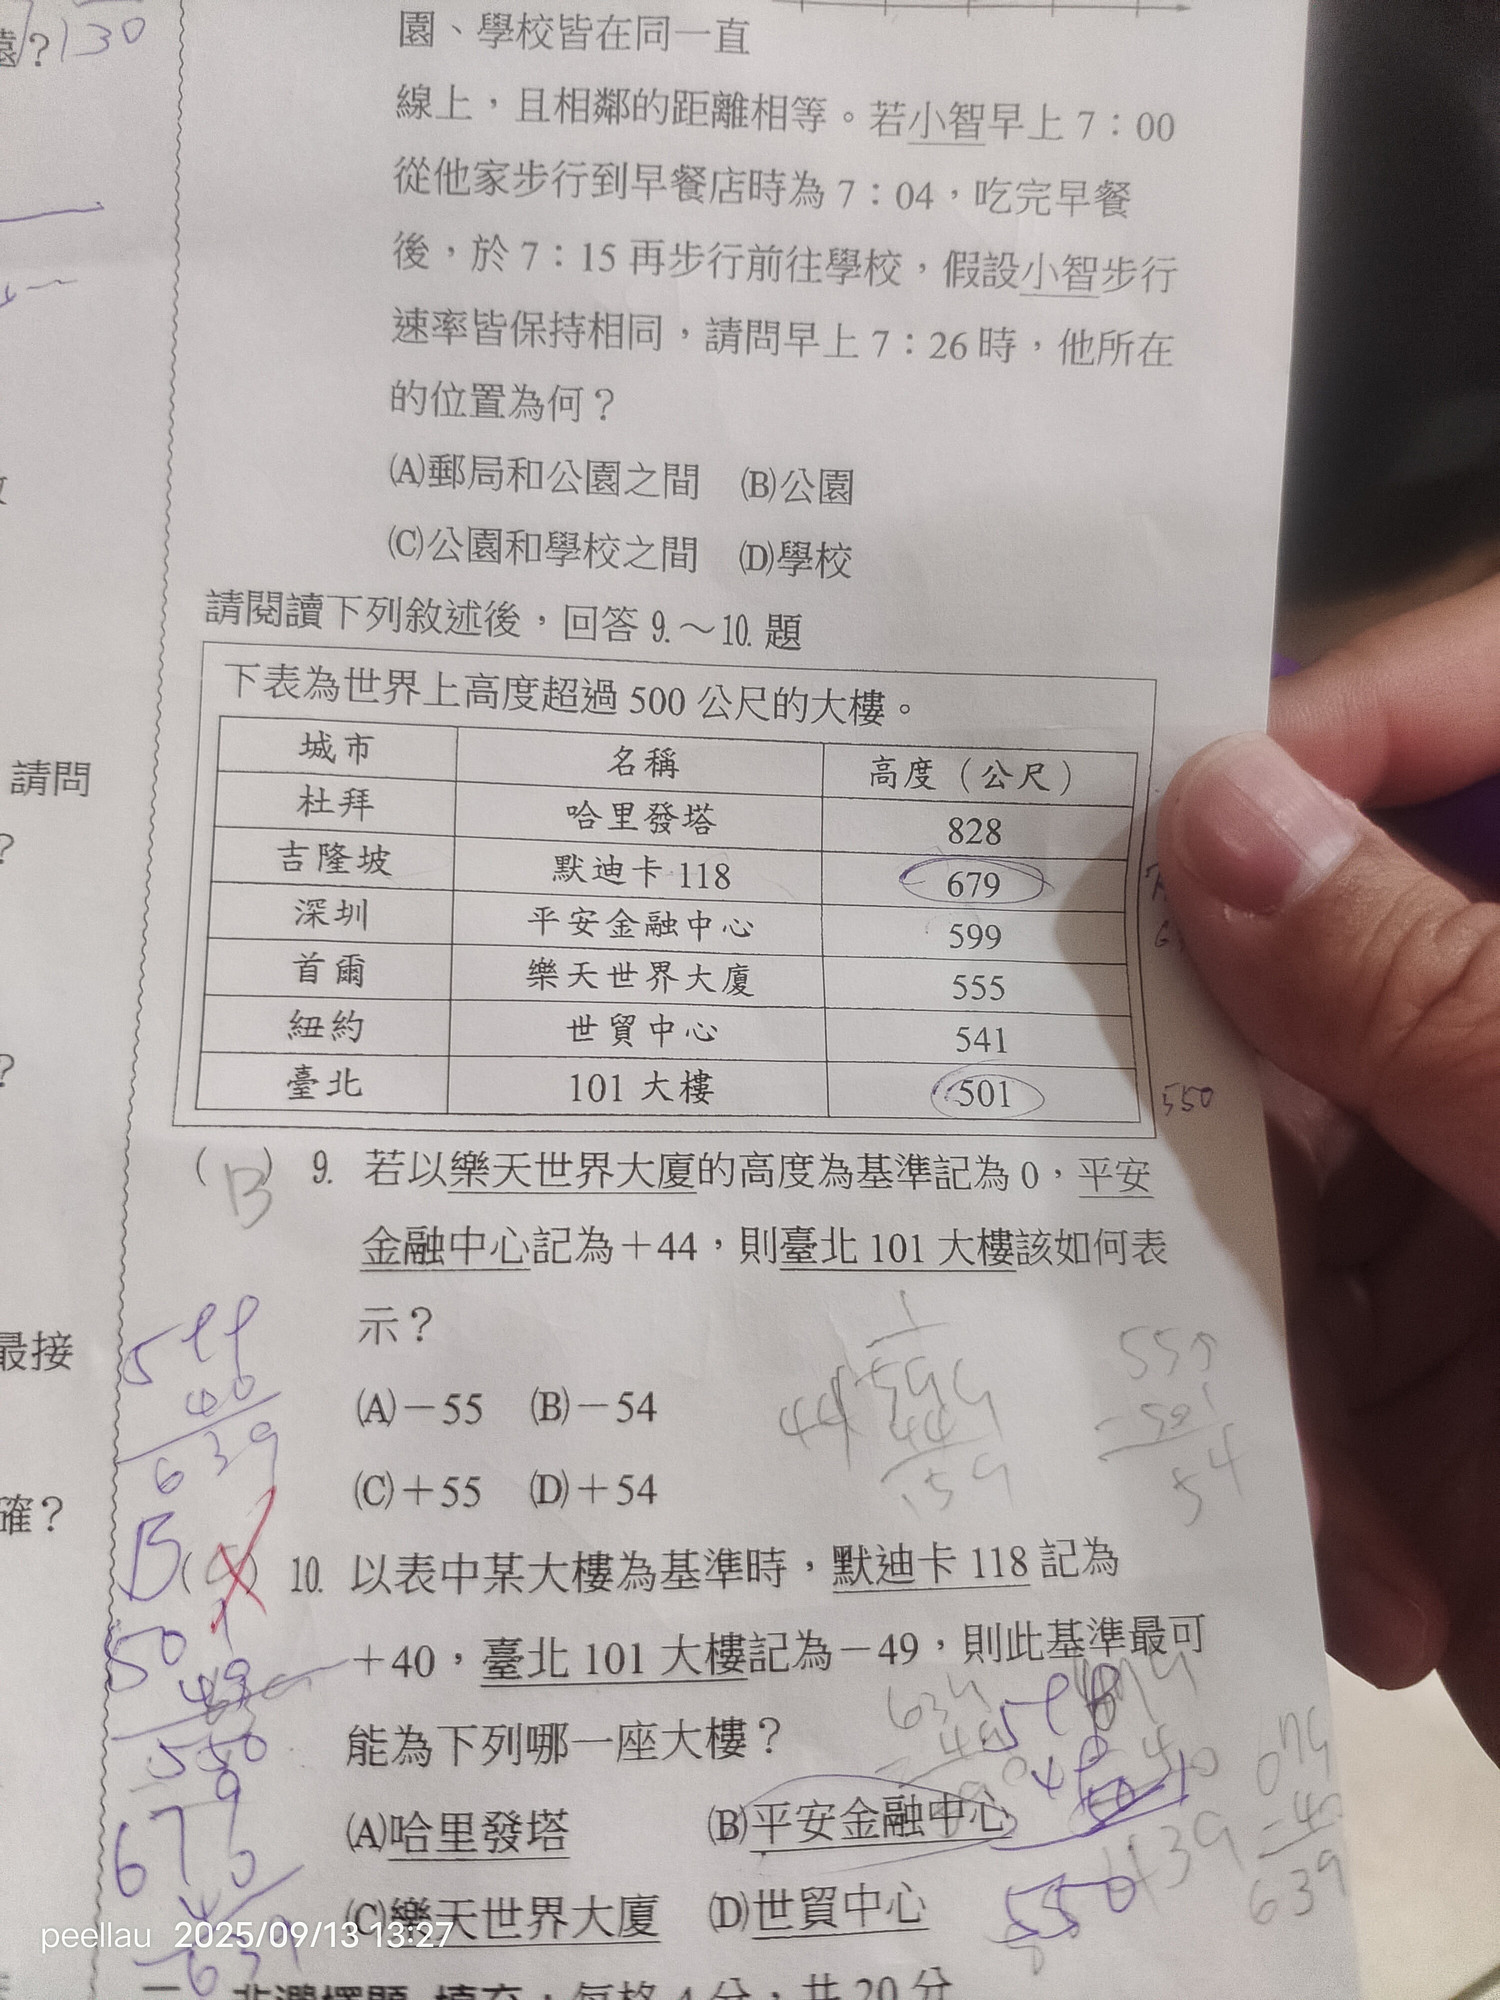 園、學校皆在同一直
線上，且相鄰的距離相等。若小智早上7：00
從他家步行到早餐店時為7：04，吃完早餐
後，於7：15再步行前往學校，假設小智步行
速率皆保持相同，請問早上7：26時，他所在
的位置為何？
(A)郵局和公園之間 (B)公園
(C)公園和學校之間 (D)學校
請閱讀下列敘述後，回答9.～10.題
下表為世界上高度超過500公尺的大樓。
城市 名稱 高度（公尺）
杜拜 哈里發塔 828
吉隆坡 默迪卡118 679
深圳 平安金融中心 599
首爾 樂天世界大廈 555
紐約 世貿中心 541
臺北 101大樓 501
550
(B) 9. 若以樂天世界大廈的高度為基準記為0，平安
金融中心記為＋44，則臺北101大樓該如何表
示？
(A)－55 (B)－54
(C)＋55 (D)＋54
599
40
639
44 599
44
159
555
-501
54
B
10. 以表中某大樓為基準時，默迪卡118記為
＋40，臺北101大樓記為－49，則此基準最可
能為下列哪一座大樓？
(A)哈里發塔 (B)平安金融中心
(C)樂天世界大廈 (D)世貿中心
550
679
-40
639
550
639
二、非選擇題 填充：每格4分，共20分
130
園？
請問
？
？
最接
確？
peellau 2025/09/13 13:27